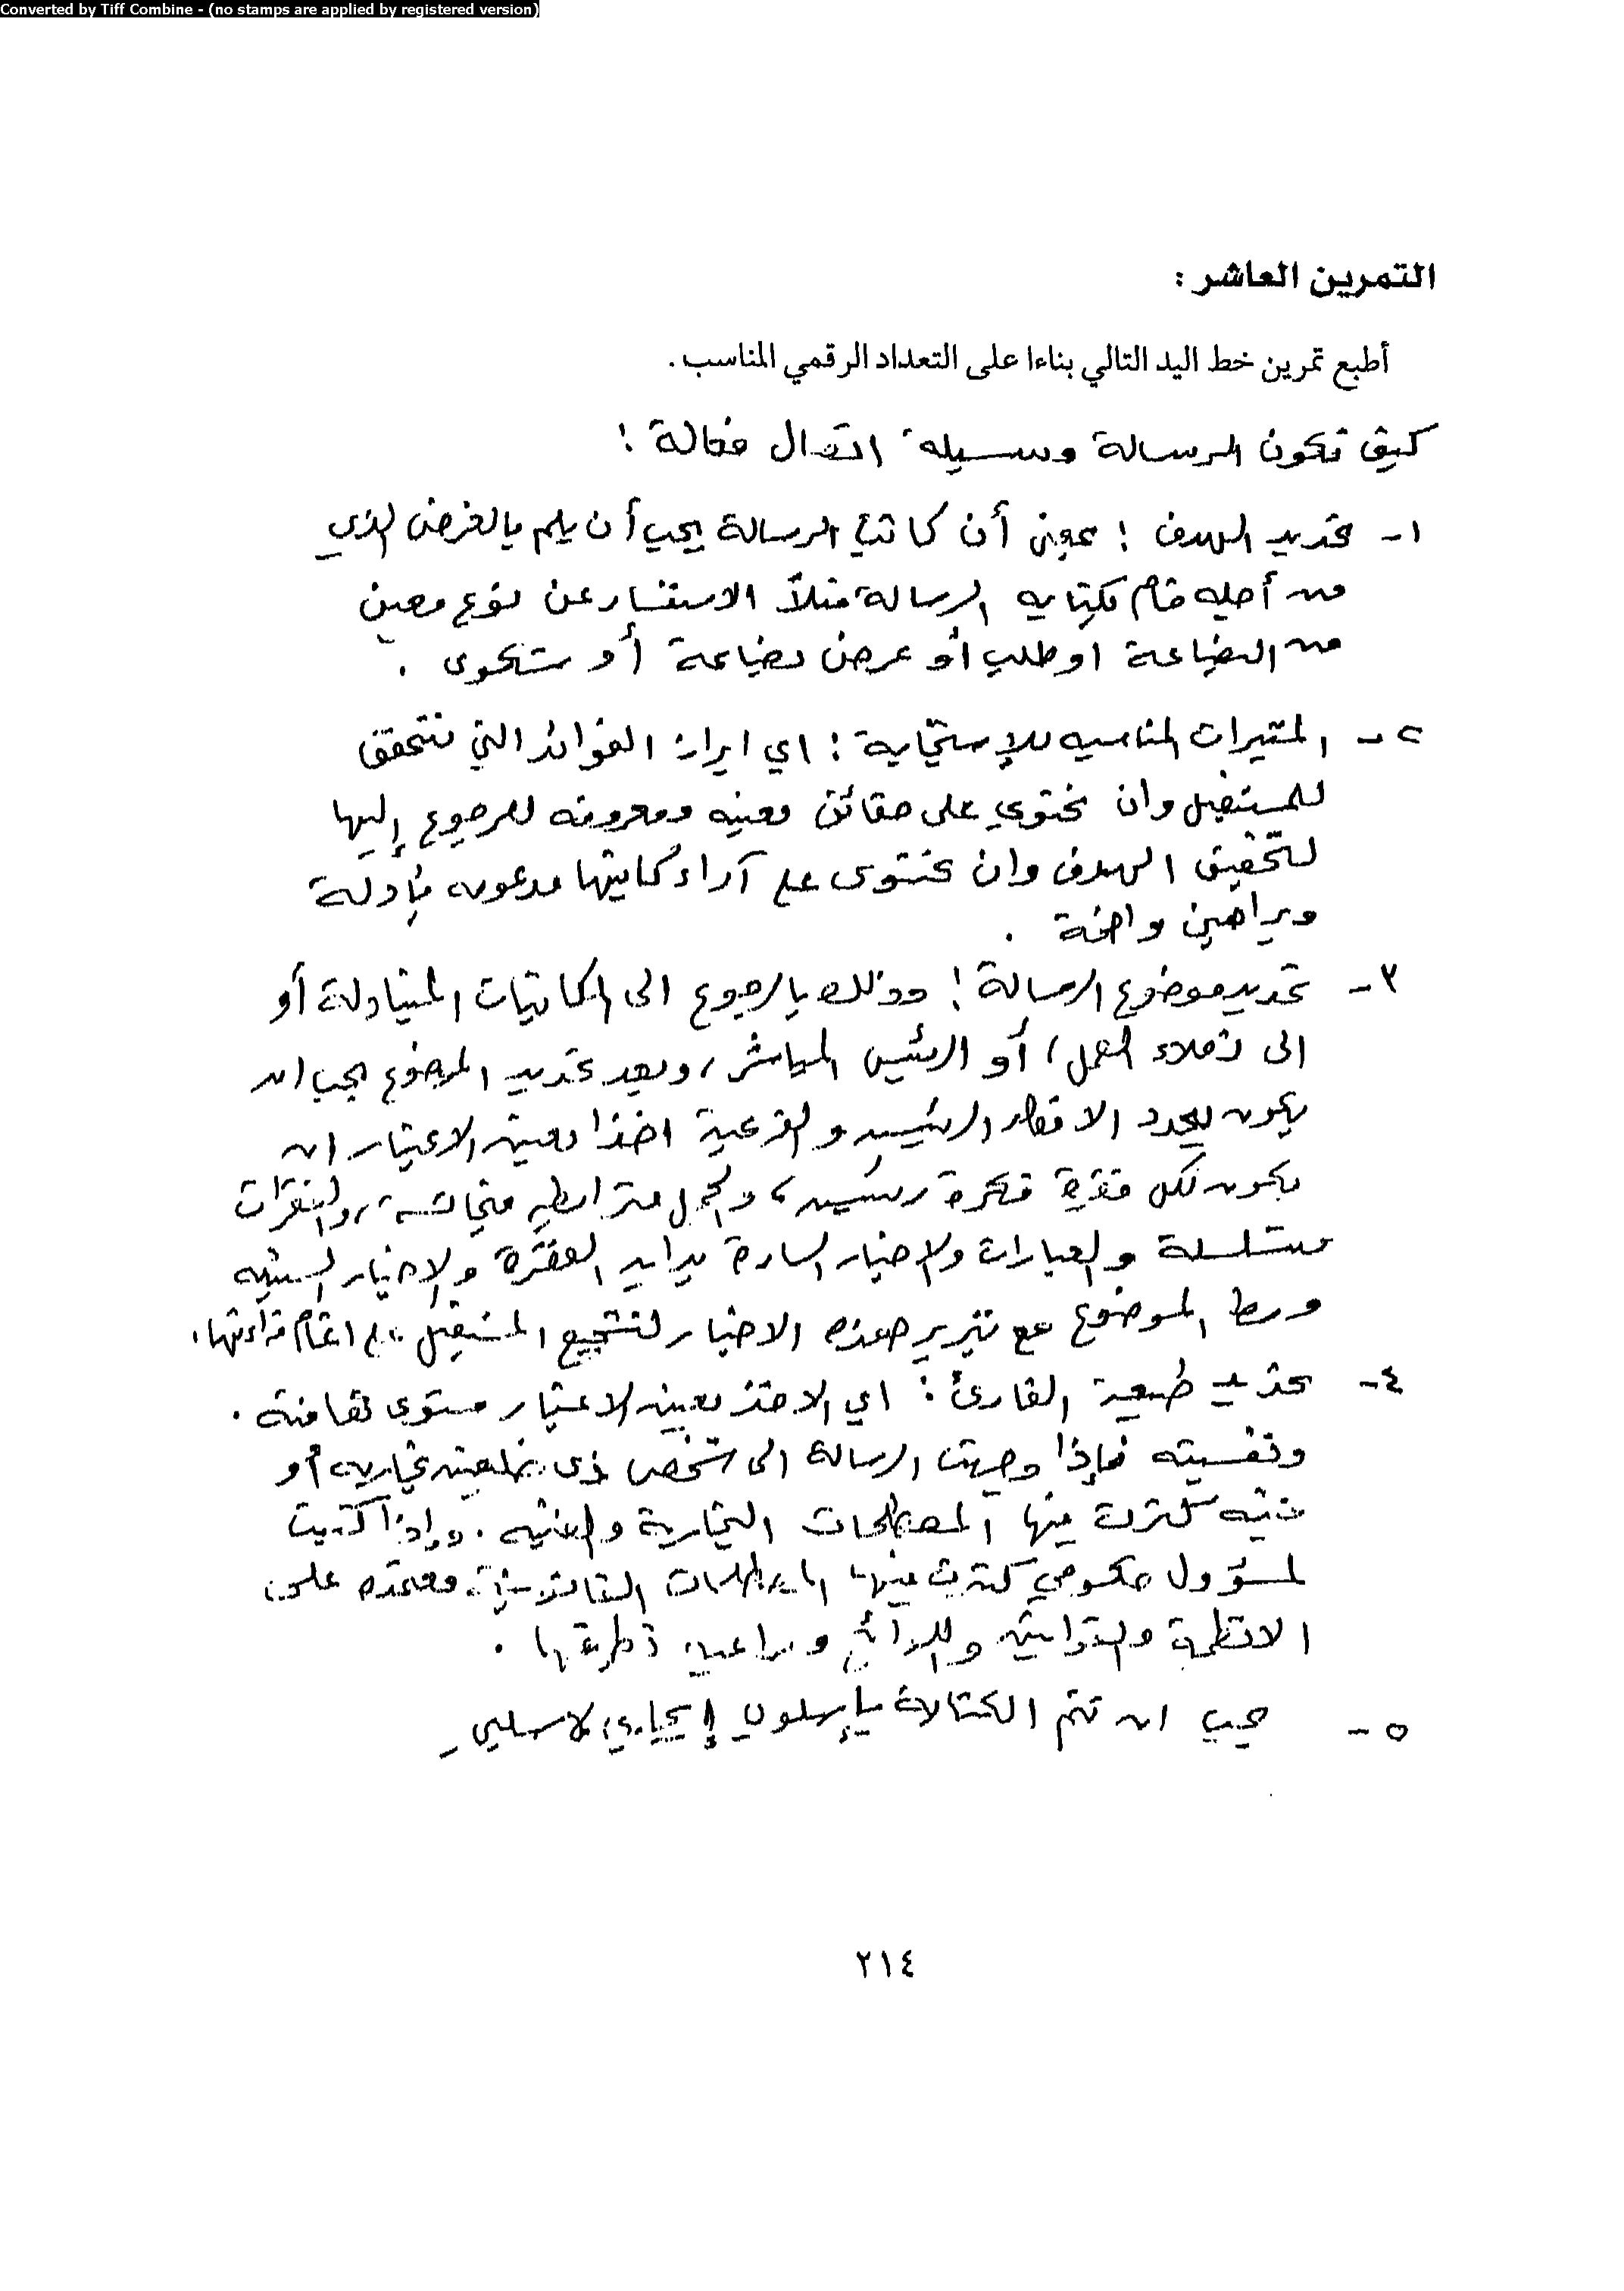 Converted by Tiff Combine - (no stamps are applied by registered version)
التمرين العاشر :
أطبع تمرين خط اليد التالي بناءا على التعداد الرقمي المناسب .
كيف تكون الرسالة وسيلة اتصال فعالة :
١- تحديد الهدف : بمعنى أن كاتب الرسالة يجب أن يلم بالغرض الذي
من أجله قام بكتابه الرسالة مثلاً الاستفسار عن نوع معين
من البضاعة او طلب أو عرض بضاعة أو شكوى .
٢- المثيرات المناسبه للإستجابة : اي ابراز الفوائد التي تتحقق
للمستقبل وان تحتوي على حقائق معينه ومعروفه للرجوع إليها
لتحقيق الهدف وان تحتوى على آراء كاتبها مدعومه بأدلة
وبراهين واضحة .
٣- تحديد موضوع الرسالة : وذلك بالرجوع الى المكاتبات المتبادلة أو
الى زملاء العمل، أو الرئيس المباشر، وبعد تحديد الموضوع يجب ان
يكون يحدد الافكار الرئيسيه والفرعية اخذا بعين الاعتبار ان
يكون لكل فقرة فكرة رئيسيه، والجمل مترابطه متجانسة، والفقرات
متسلسلة والعبارات والاخبار السارة بداية الفقرة والاخبار السيئه
وسط الموضوع مع تبرير هذه الاخبار لتشجيع المستقبل على اتمام قراءتها.
٤- تحديد طبيعة القارئ : اي الاخذ بعين الاعتبار مستوى ثقافته .
ونفسيته فإذا وجهت الرسالة الى شخص ذى خلفيه تجاريه أو
فنيه كثرت فيها المصطلحات التجارية والفنيه . وإذا كتبت
لمسؤول حكومي كثرت فيها المصطلحات القانونية معتمده على
الانظمة والقوانين واللوائح
٥- يجب ان تتم الكتابة بإسلوب إيجابي لا سلبي
٢١٤